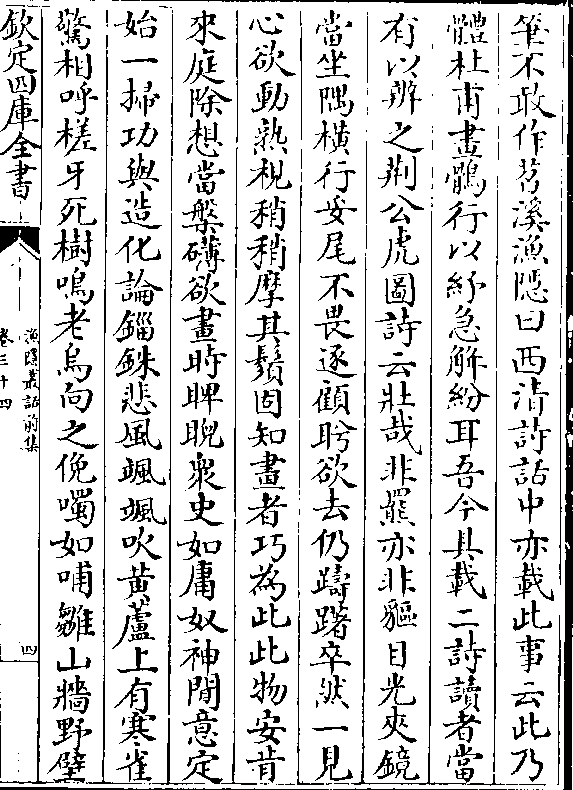 筆不敢作苕溪漁隱曰西清詩話中亦載此事云此乃
體杜甫畫鶻行以紓急解紛耳吾今具載二詩讀者當
有以辨之荆公虎圖詩云壯哉非羆亦非貙目光夾鏡
當坐隅橫行妥尾不畏逐顧盻欲去仍躊躇卒然一見
心欲動熟視稍稍摩其鬚固知畫者巧為此此物安肯
來庭除想當槃礴欲畫時睥睨衆史如庸奴神閒意定
始一掃功與造化論錙銖悲風颯颯吹黄蘆上有寒雀
驚相呼槎牙死樹鳴老烏向之俛噣如哺雛山牆野壁
欽定四庫全書
漁隱叢話前集
卷三十四
四